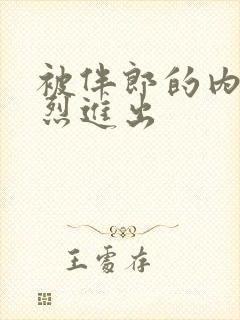 被伴郎的内
烈进出
王雪存